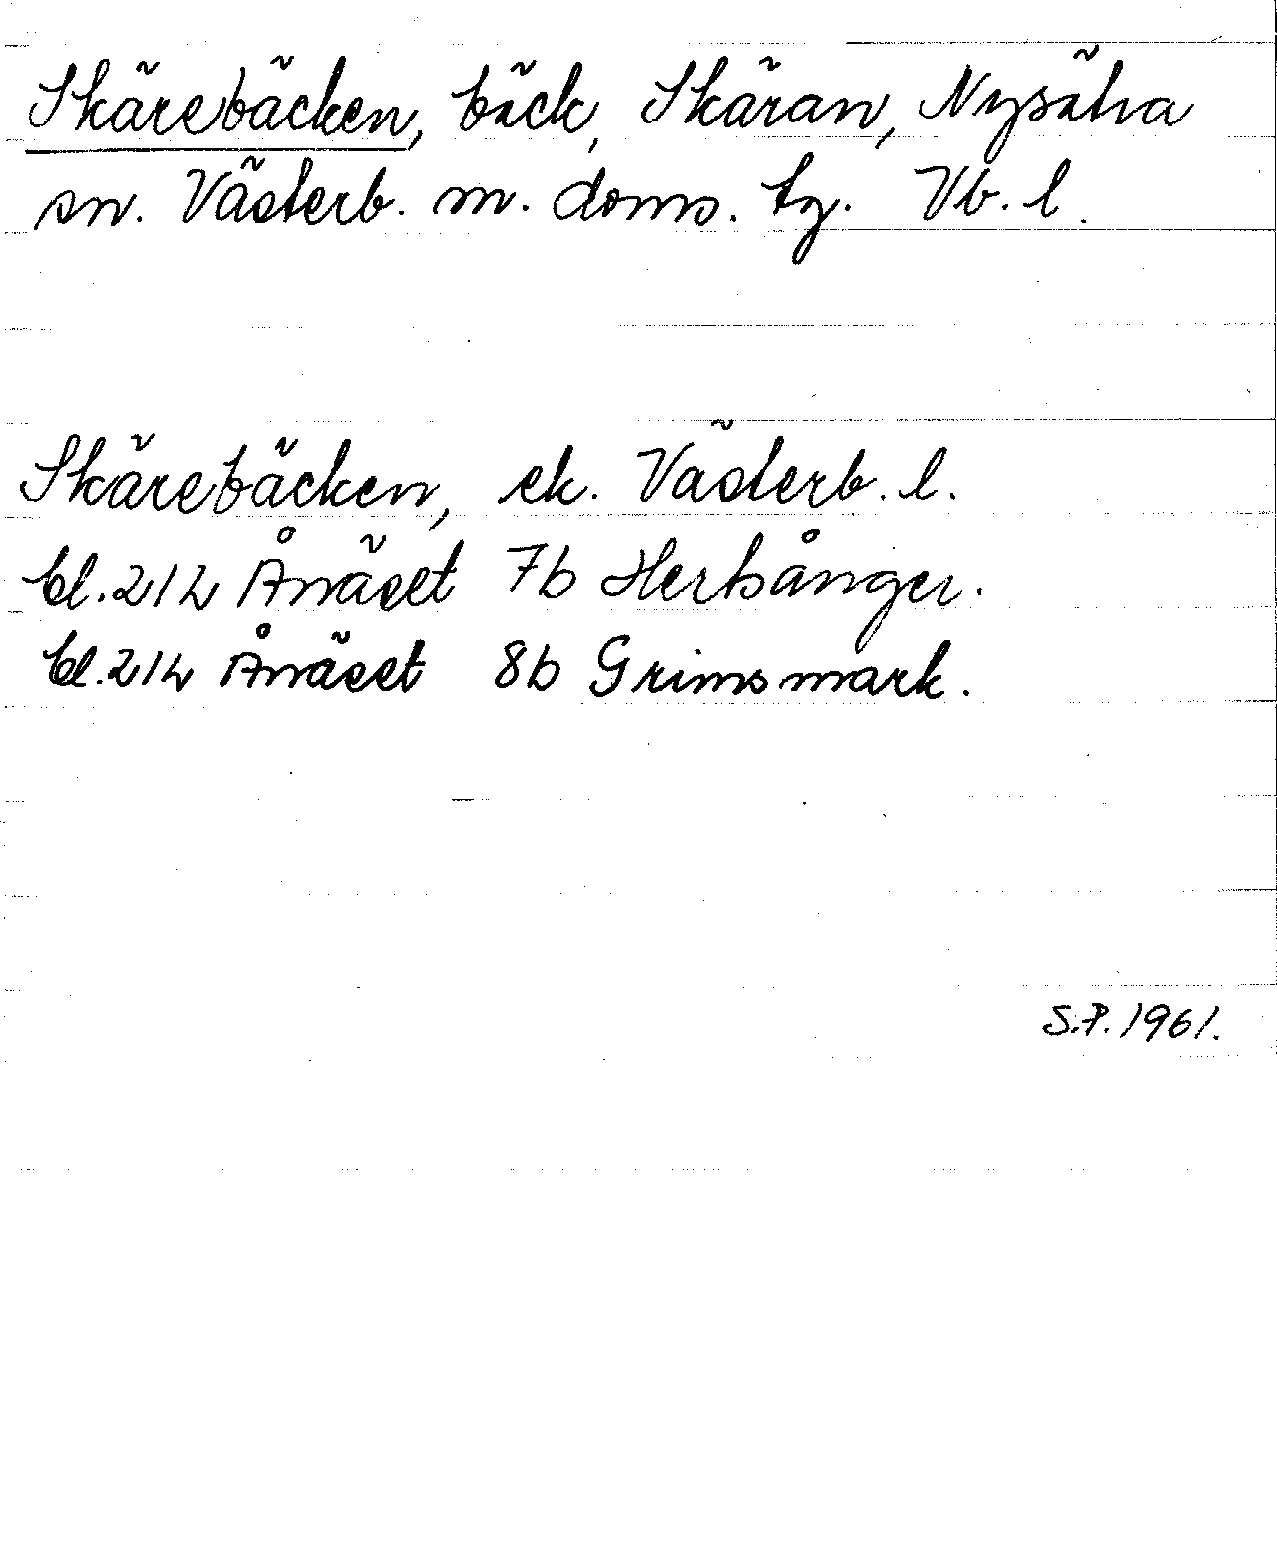 Skärebäcken, bäck, Skäran, Nysätra
sn. Västerb. m. doms. tg. Vb. l.
Skärebäcken, ek. Västerb. l.
bl. 21L Ånäset 7b Hertsånger.
bl. 21L Ånäset 8b Grimsmark.
S.P. 1961.